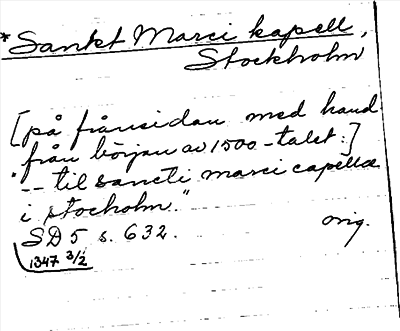 *Sankt Marci kapell,
Stockholm
[på frånsidan med hand
från början av 1500-talet:]
"-- til sancti marci capellæ
i stocholm."
SD 5 s. 632. orig.
1347 3/2